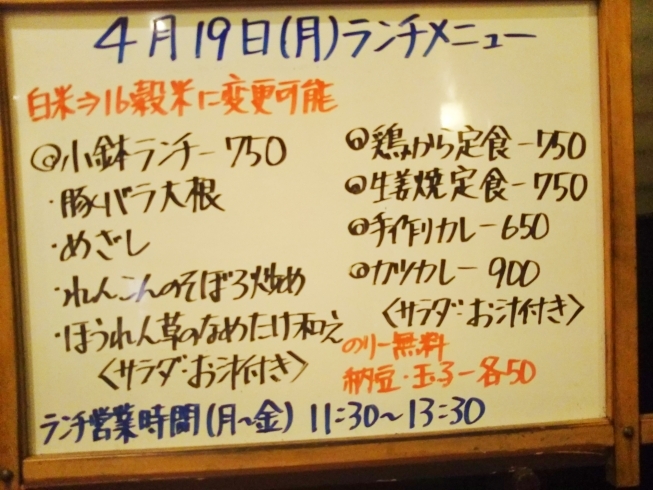 4月19日(月)ランチメニュー
白米⇒16穀米に変更可能
◎小鉢ランチー750
・豚バラ大根
・めざし
・れんこんのそぼろ炒め
・ほうれん草のなめたけ和え
〈サラダ・お汁付き〉
◎鶏から定食ー750
◎生姜焼定食ー750
◎手作りカレー650
◎カツカレー900
〈サラダ・お汁付き〉
のりー無料
納豆・玉子ー各50
ランチ営業時間(月〜金) 11:30〜13:30